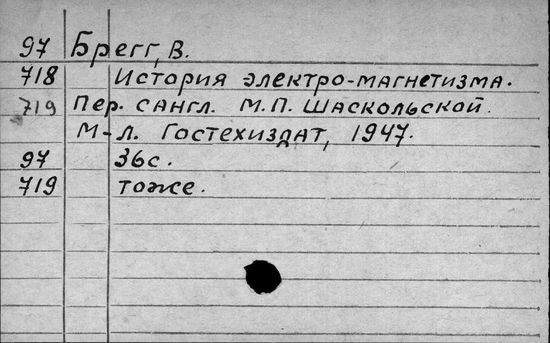 97 Брегг, В.
718 История электро-магнетизма.
719 Пер. с англ. М.П. Шаскольской.
М-Л. Гостехиздат, 1947.
97 36с.
719 тоже.